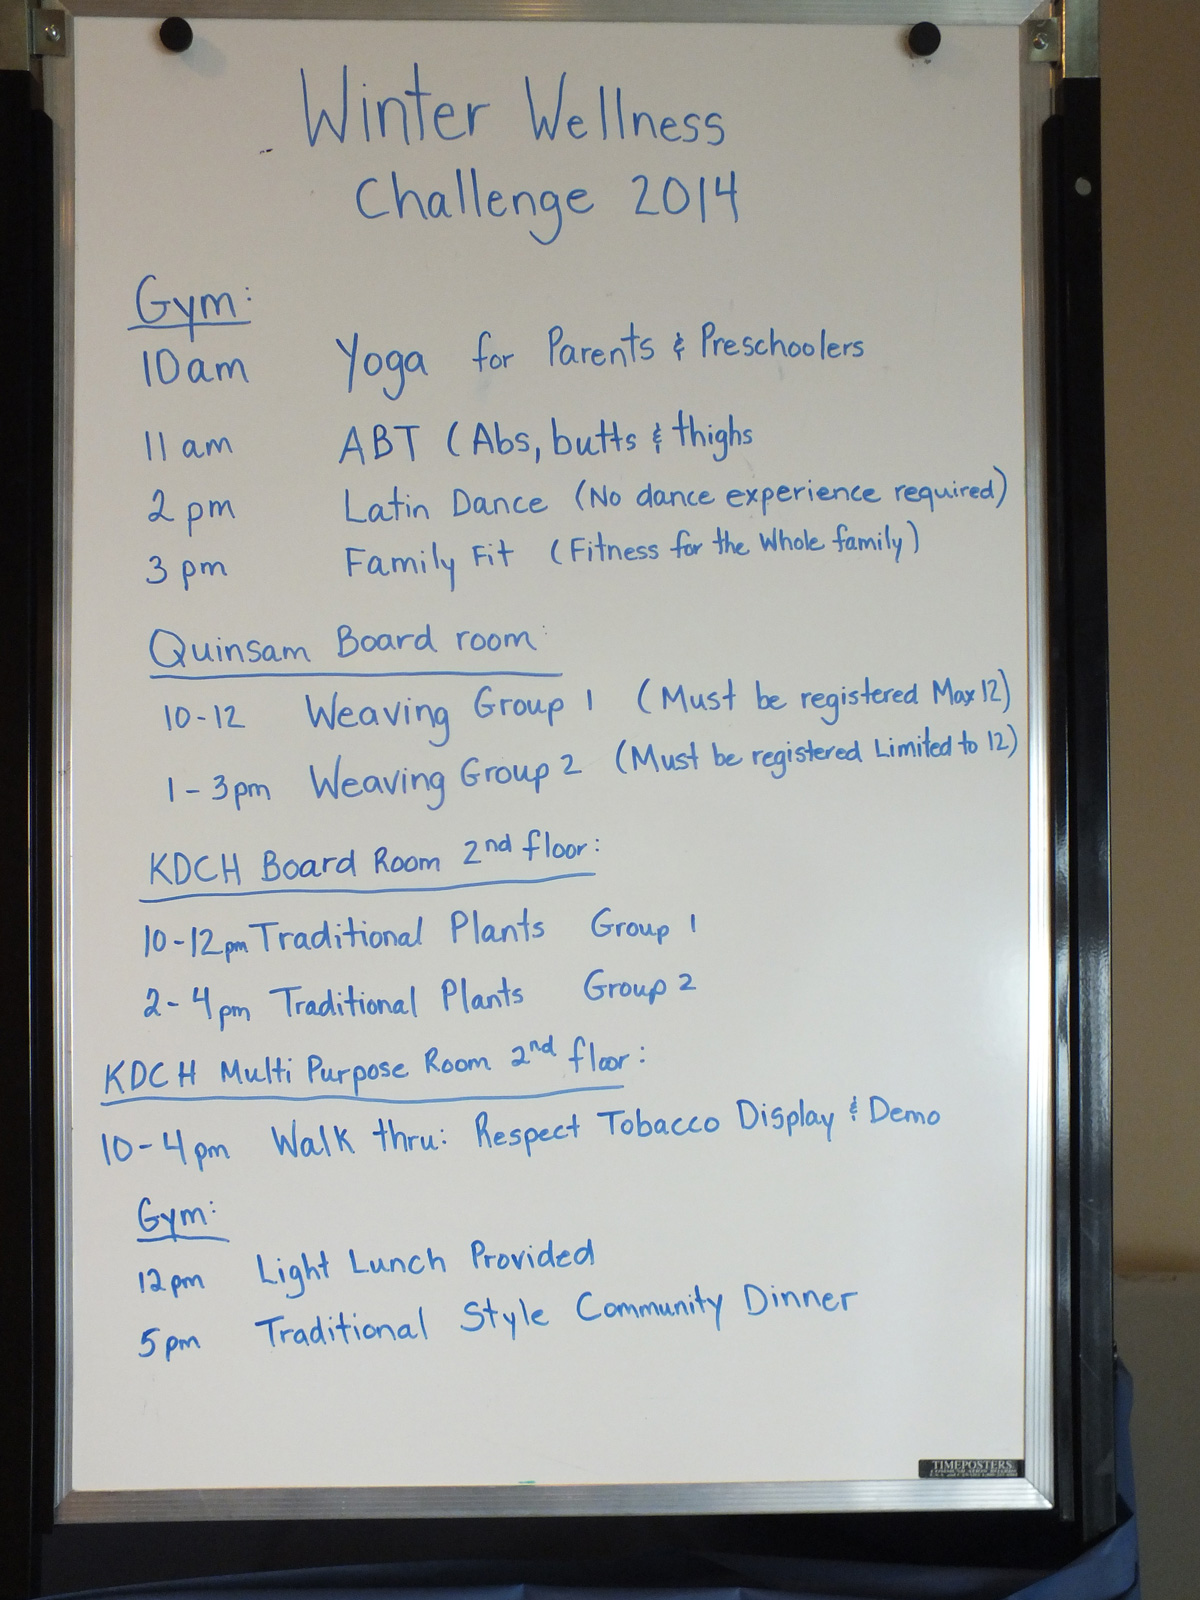 Winter Wellness
Challenge 2014
Gym:
10am Yoga for Parents & Preschoolers
11 am ABT (Abs, butts & thighs
2 pm Latin Dance (No dance experience required)
3 pm Family Fit (Fitness for the Whole family)
Quinsam Board room:
10-12 Weaving Group 1 (Must be registered Max 12)
1-3pm Weaving Group 2 (Must be registered Limited to 12)
KDCH Board Room 2nd floor:
10-12pm Traditional Plants Group 1
2-4pm Traditional Plants Group 2
KDCH Multi Purpose Room 2nd floor:
10-4pm Walk thru: Respect Tobacco Display & Demo
Gym:
12pm Light Lunch Provided
5pm Traditional Style Community Dinner
TIMEPOSTERS